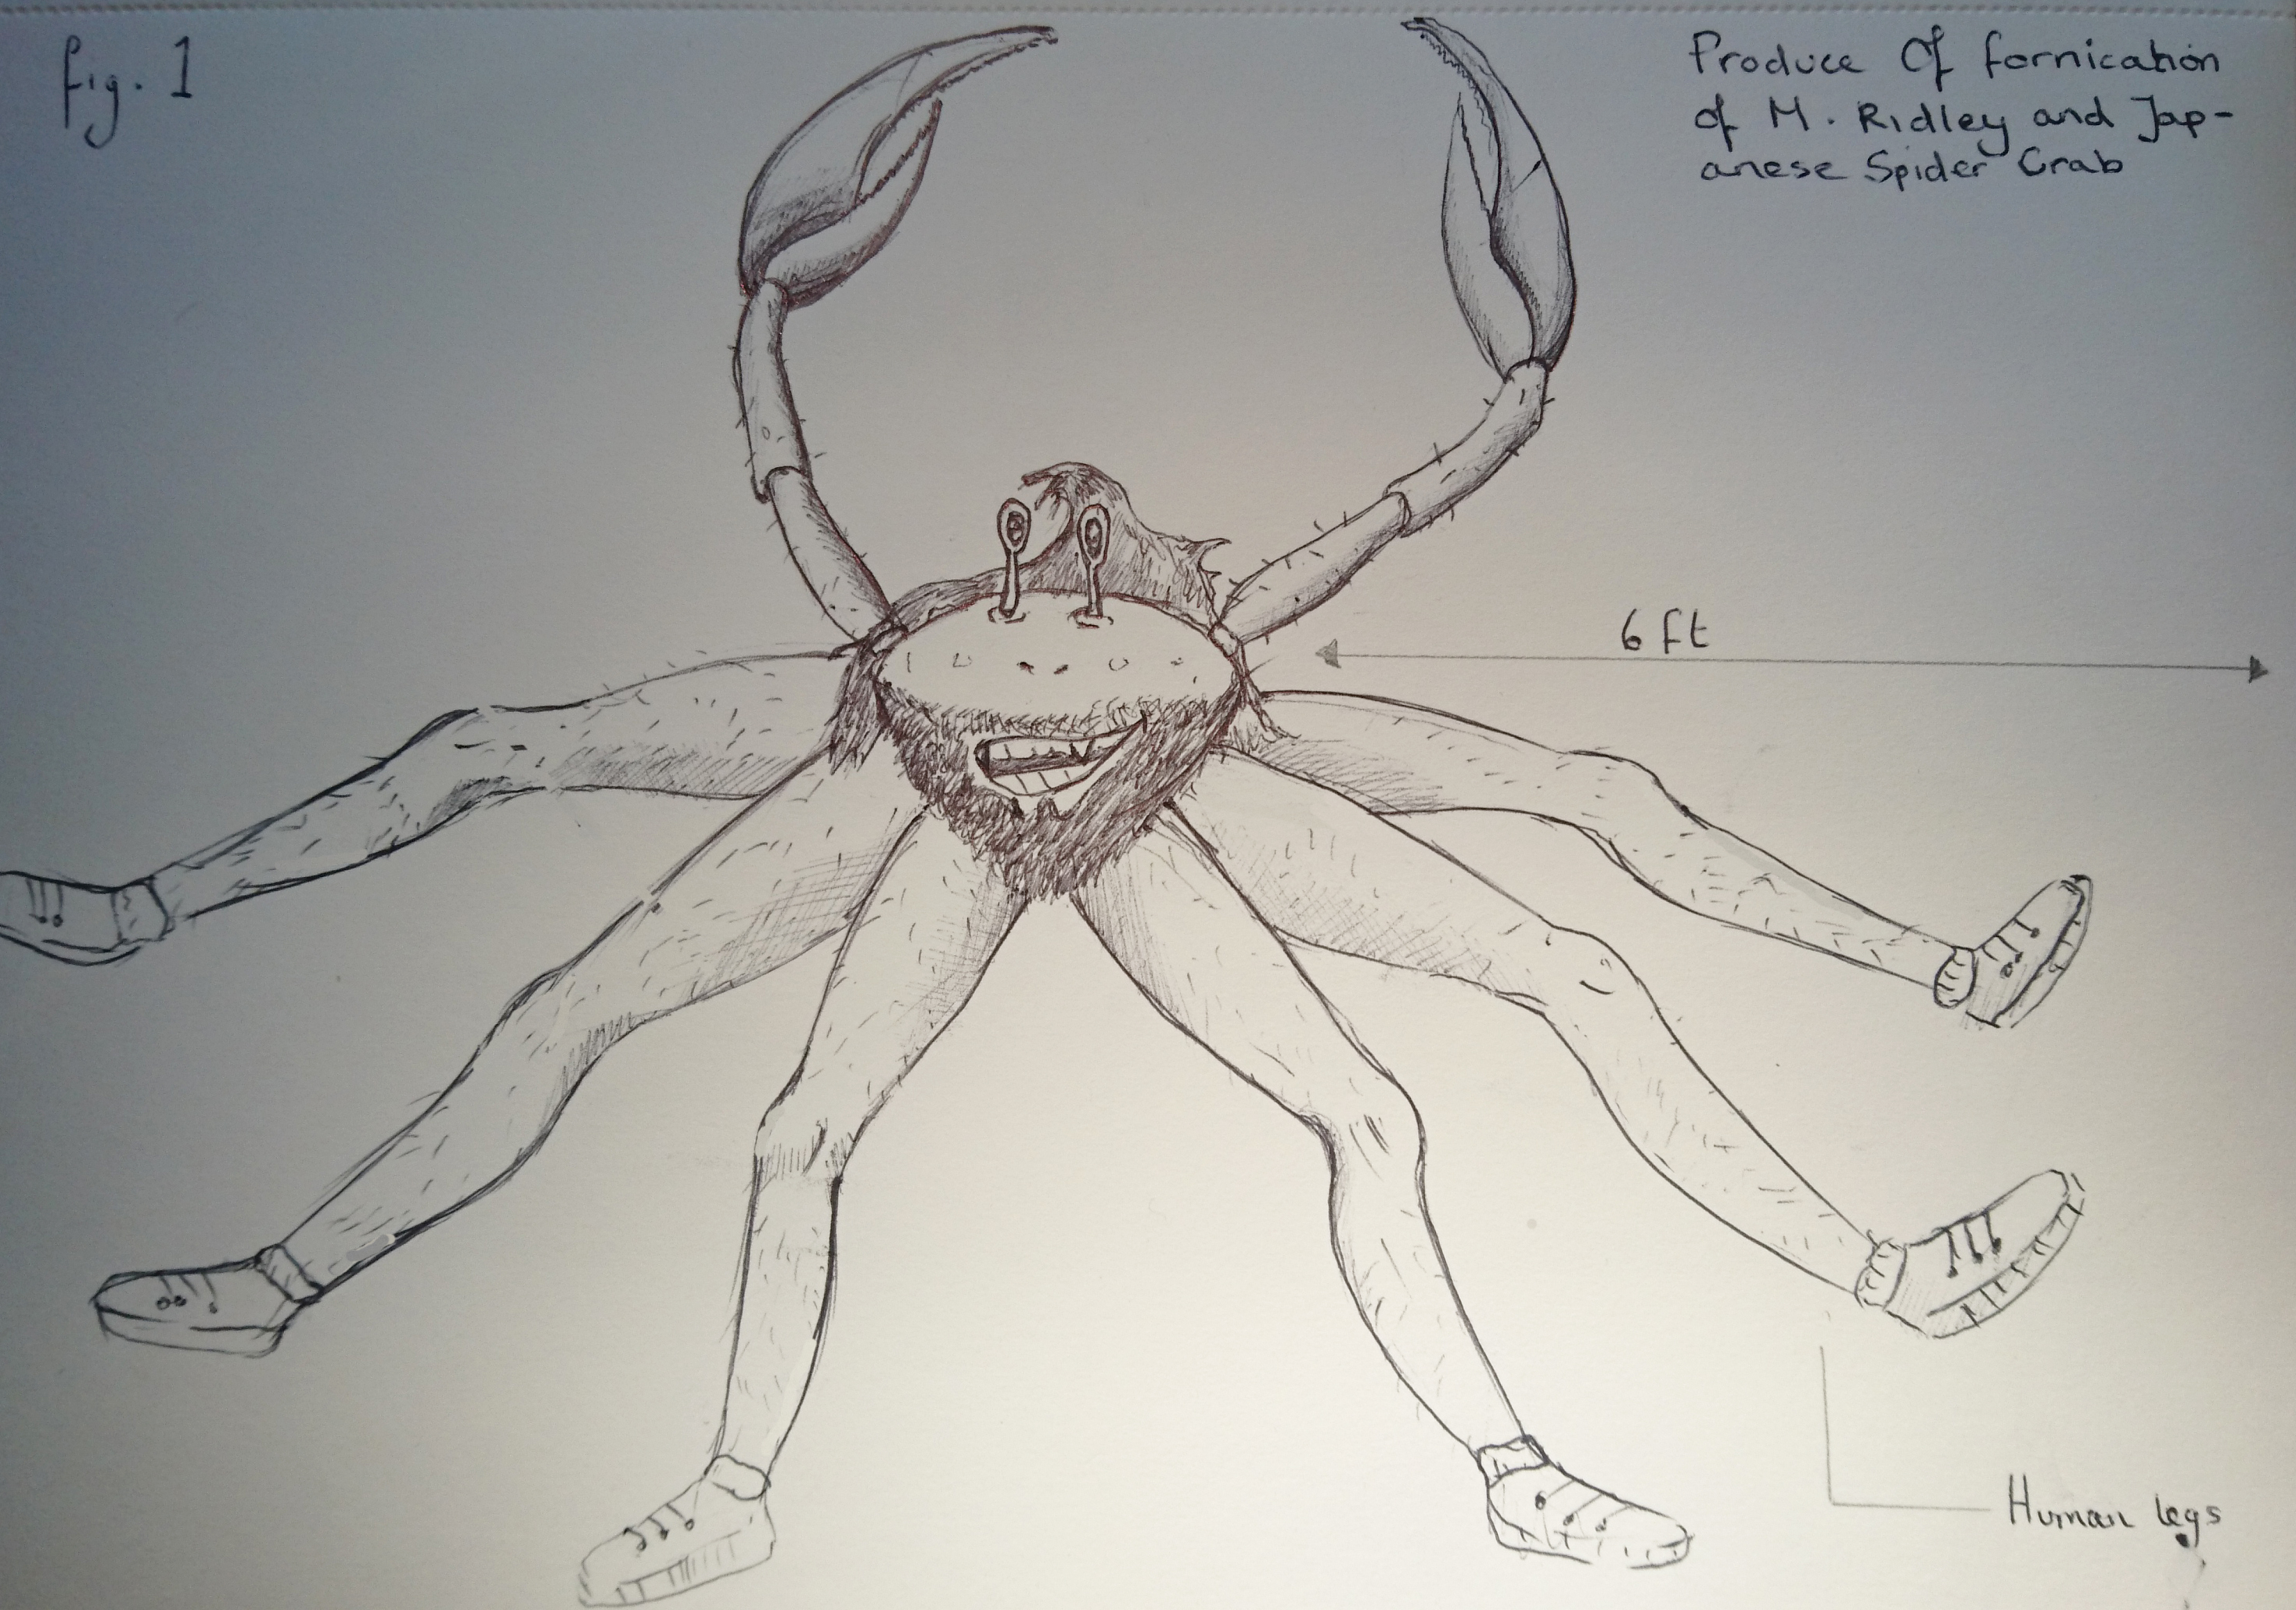 fig. 1
Produce Of fornication
of M. Ridley and Jap-
anese Spider Crab
6 ft
Human legs